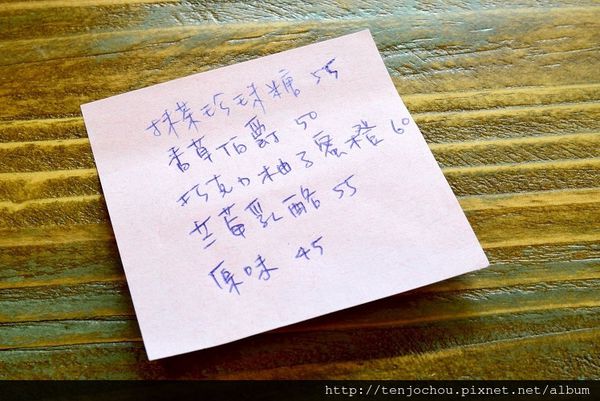 抹茶珍珠糖 55
香草伯爵 50
巧克力柚子蜜橙 60
兰莓乳酪 55
原味 45
http://tenjochou.pixnet.net/album